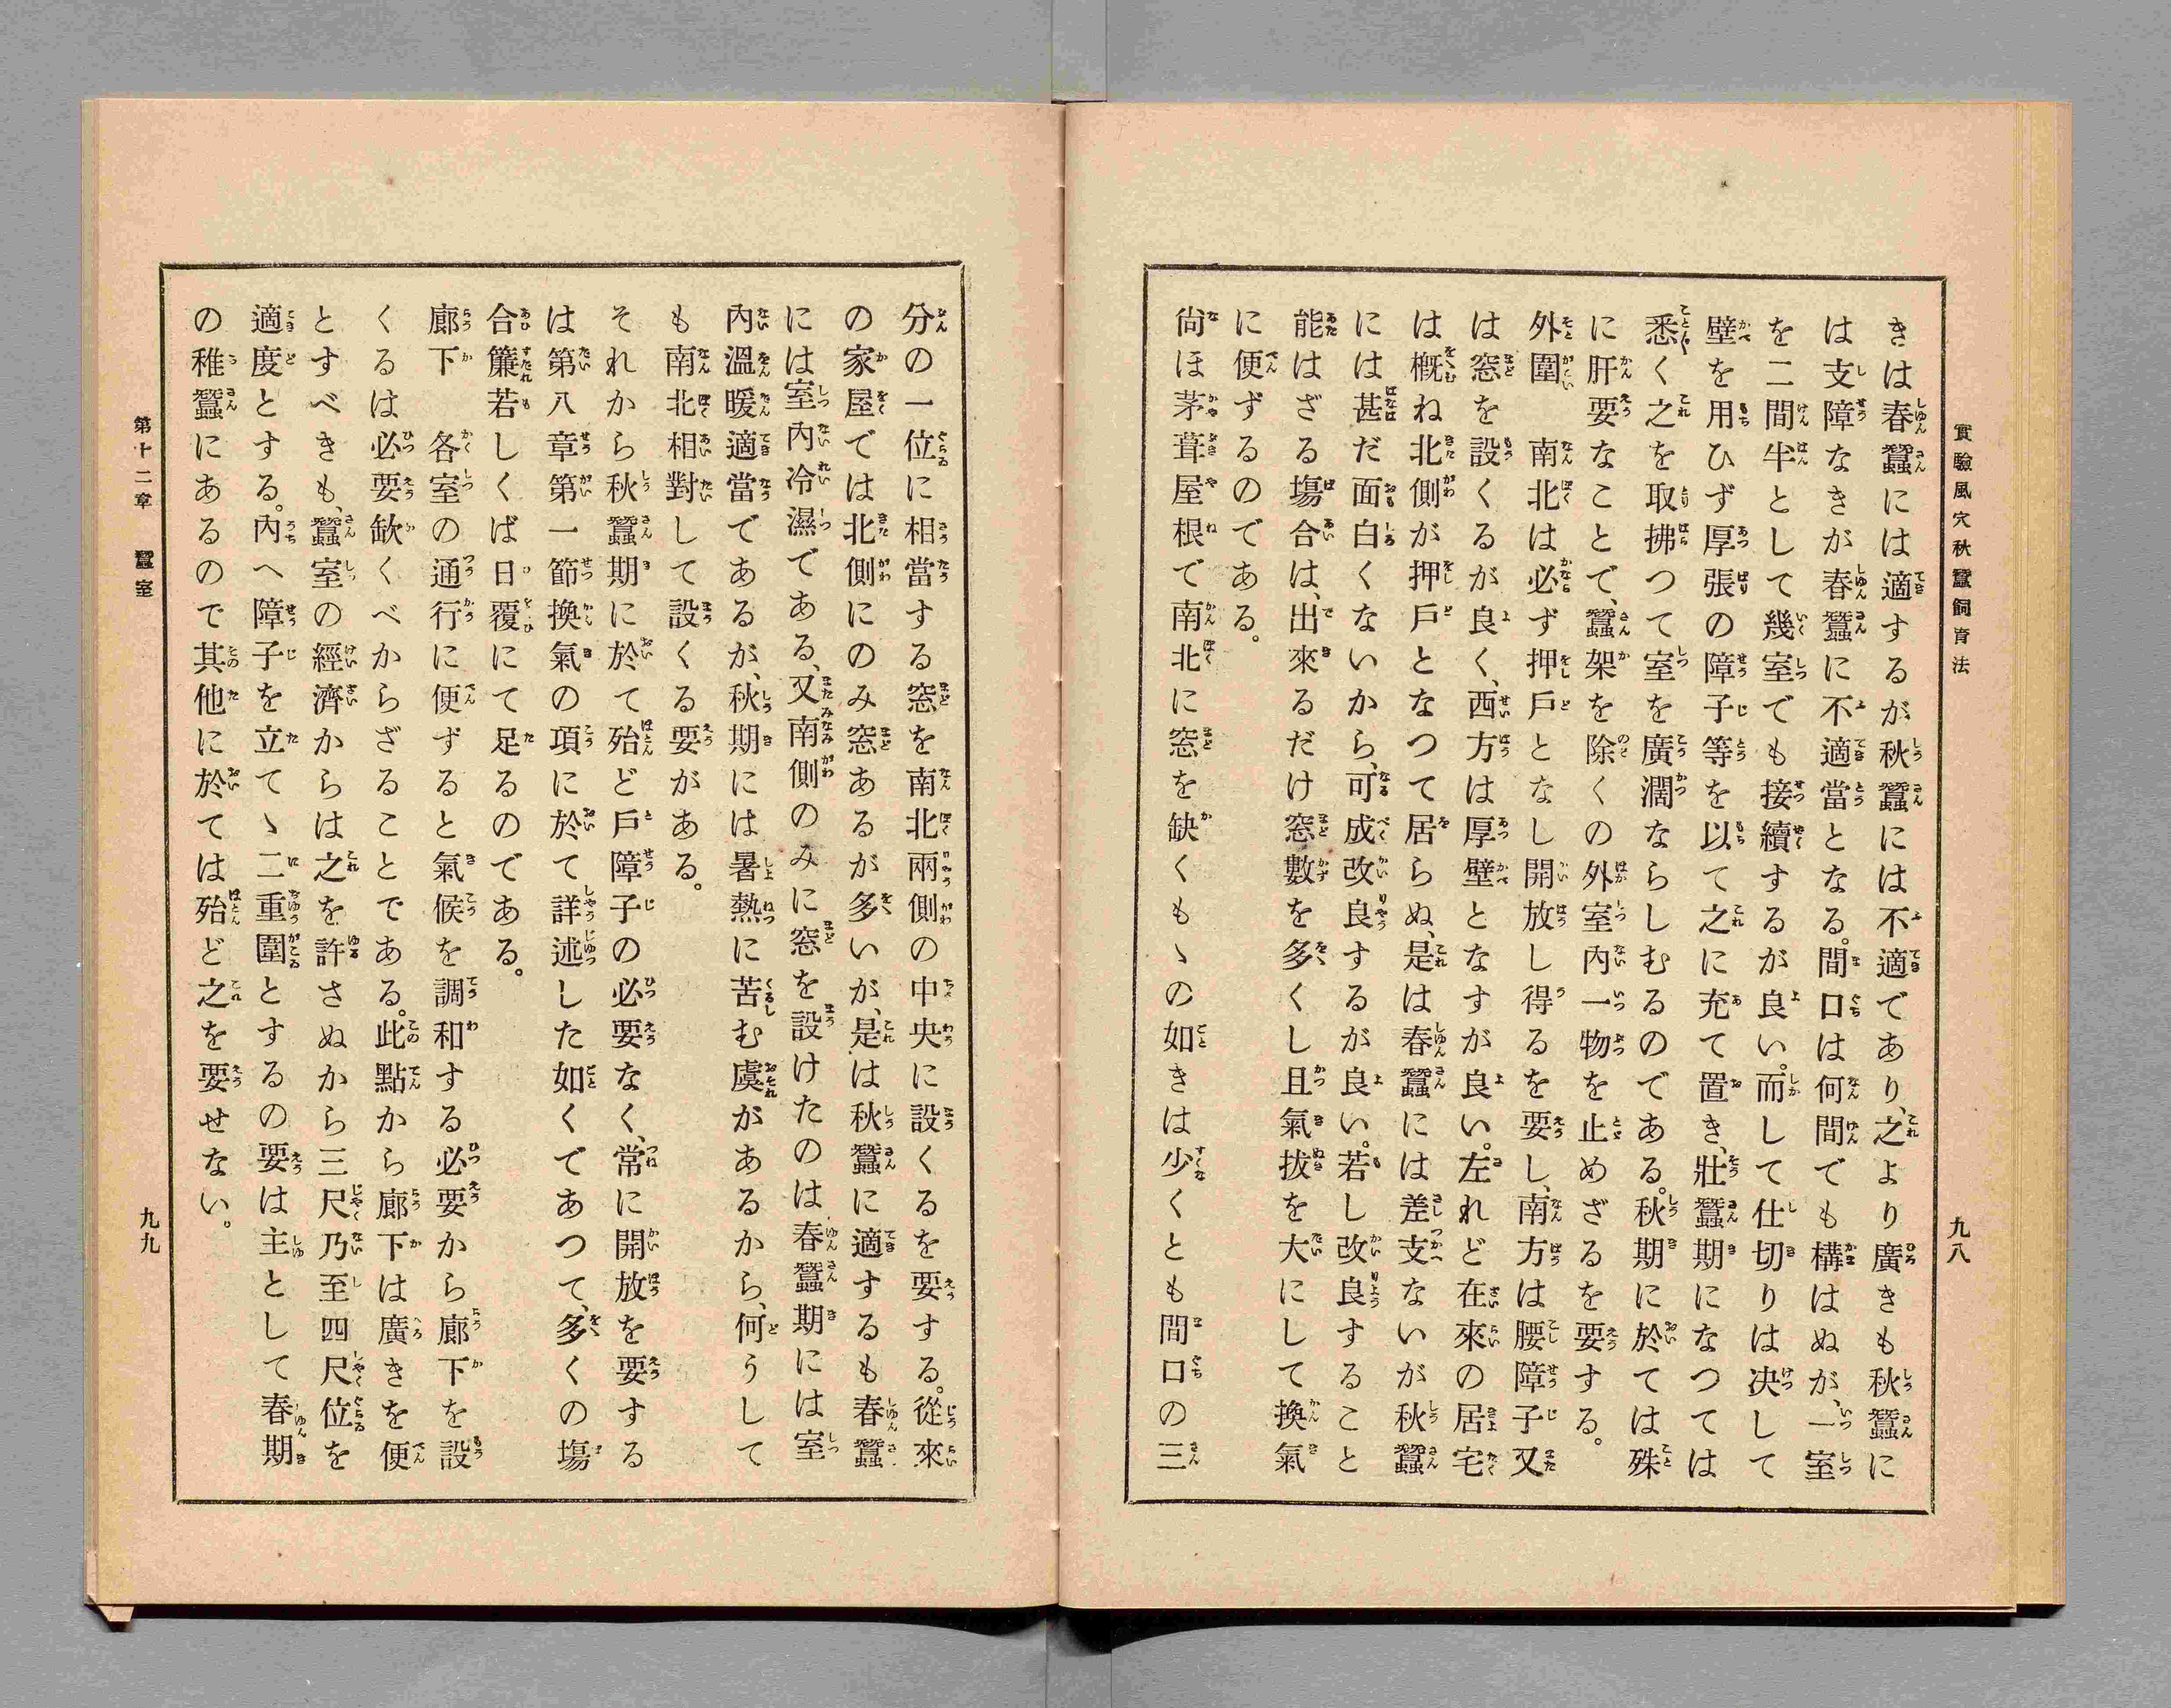 實驗風穴秋蠶飼育法
九八
きは春蠶には適するが秋蠶には不適であり、之より廣きも秋蠶に
は支障なきが春蠶に不適當となる。間口は何間でも構はぬが、一室
を二間半として幾室でも接續するが良い。而して仕切りは決して
壁を用ひず厚張の障子等を以て之に充て置き、壯蠶期になつては
悉く之を取拂つて室を廣濶ならしむるのである。秋期に於ては殊
に肝要なことで、蠶架を除くの外室內一物を止めざるを要する。
外圍　南北は必ず押戶となし開放し得るを要し、南方は腰障子又
は窓を設くるが良く、西方は厚壁となすが良い。左れど在來の居宅
は槪ね北側が押戶となつて居らぬ、是は春蠶には差支ないが秋蠶
には甚だ面白くないから、可成改良するが良い。若し改良すること
能はざる塲合は、出來るだけ窓數を多くし且氣拔を大にして換氣
に便ずるのである。
尙ほ茅葺屋根で南北に窓を缺くもゝの如きは少くとも間口の三
分の一位に相當する窓を南北兩側の中央に設くるを要する。從來
の家屋では北側にのみ窓あるが多いが、是は秋蠶に適するも春蠶
には室內冷濕である、又南側のみに窓を設けたのは春蠶期には室
內溫暖適當であるが、秋期には暑熱に苦む虞があるから、何うして
も南北相對して設くる要がある。
それから秋蠶期に於て殆ど戶障子の必要なく、常に開放を要する
は第八章第一節換氣の項に於て詳述した如くであつて、多くの塲
合簾若しくば日覆にて足るのである。
廊下　各室の通行に便ずると氣候を調和する必要から廊下を設
くるは必要缺くべからざることである。此點から廊下は廣きを便
とすべきも、蠶室の經濟からは之を許さぬから三尺乃至四尺位を
適度とする。內へ障子を立てゝ二重圍とするの要は主として春期
の稚蠶にあるので其他に於ては殆ど之を要せない。
第十二章　蠶室
九九